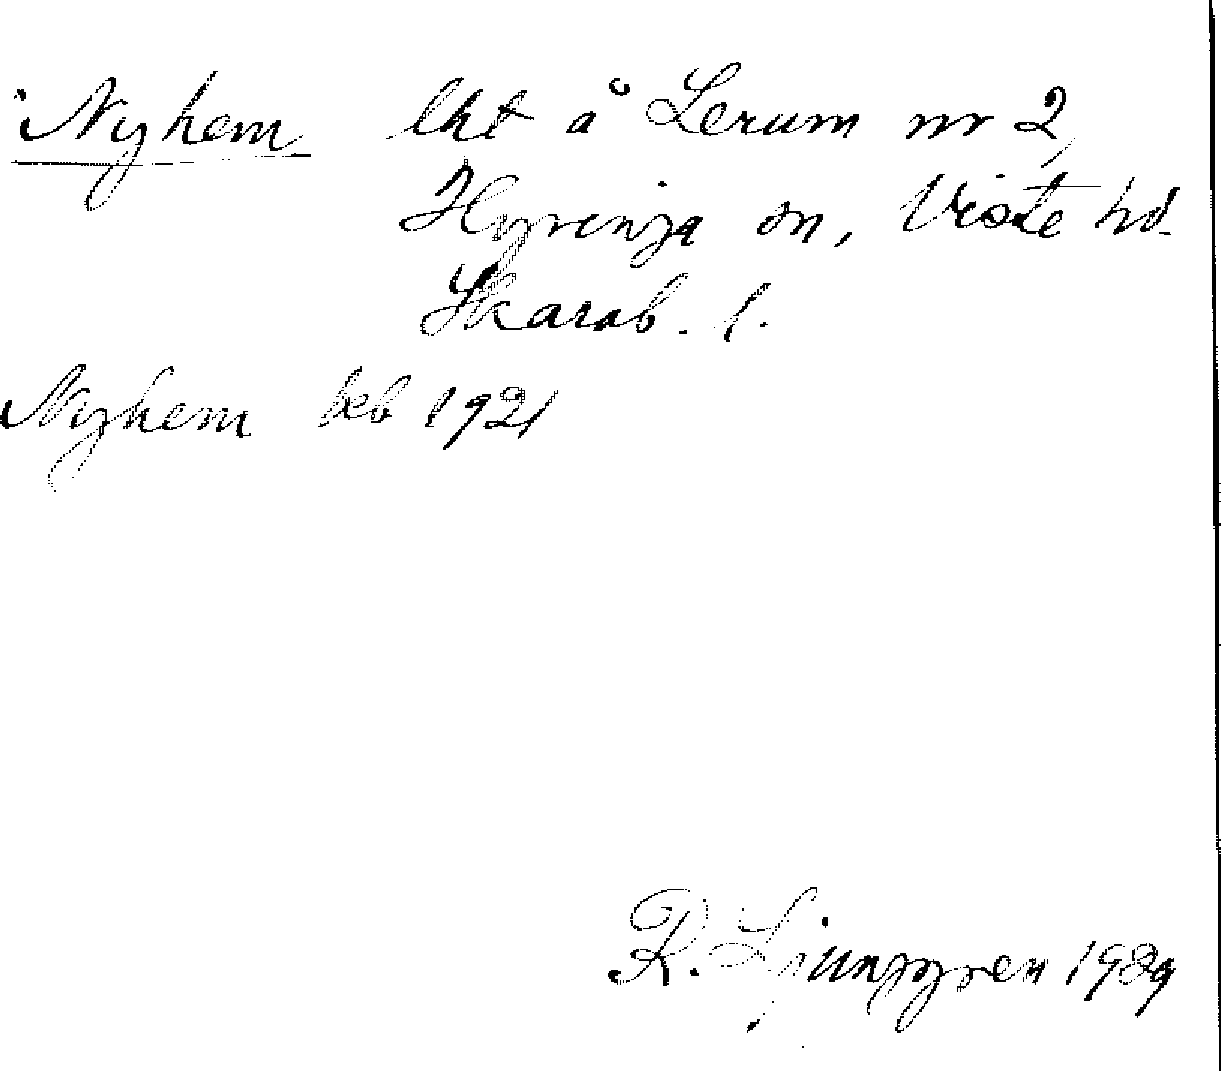 Nyhem lht å Lerum nr 2,
Hyringa sn, Viste hd.
Skarab. l.
Nyhem beb 1921
R. Ljunggren 1929